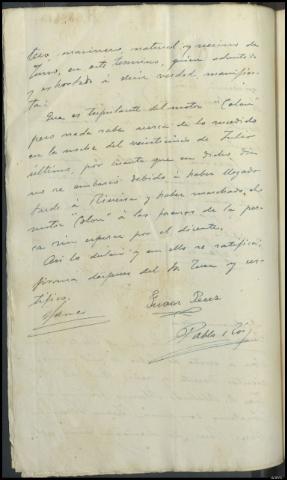 tero, marinero, natural y vecino de
, en este termino, quien advertido
y exhortado á decir verdad, manifies-
ta:
Que es tripulante del motor "Colón"
pero nada sabe acerca de lo sucedido
en la noche del veinticinco de Julio
último, por cuanto que en dicho dia
no se embarcó debido á haber llegado
tarde á Riveira y haber marchado el
motor "Colón" á las faenas de la pes-
ca sin esperar por el dicente.
Asi lo declaró y en ello se ratificó,
firma despues del Sr Juez y cer-
tifico.
Juan Perez
Pablo